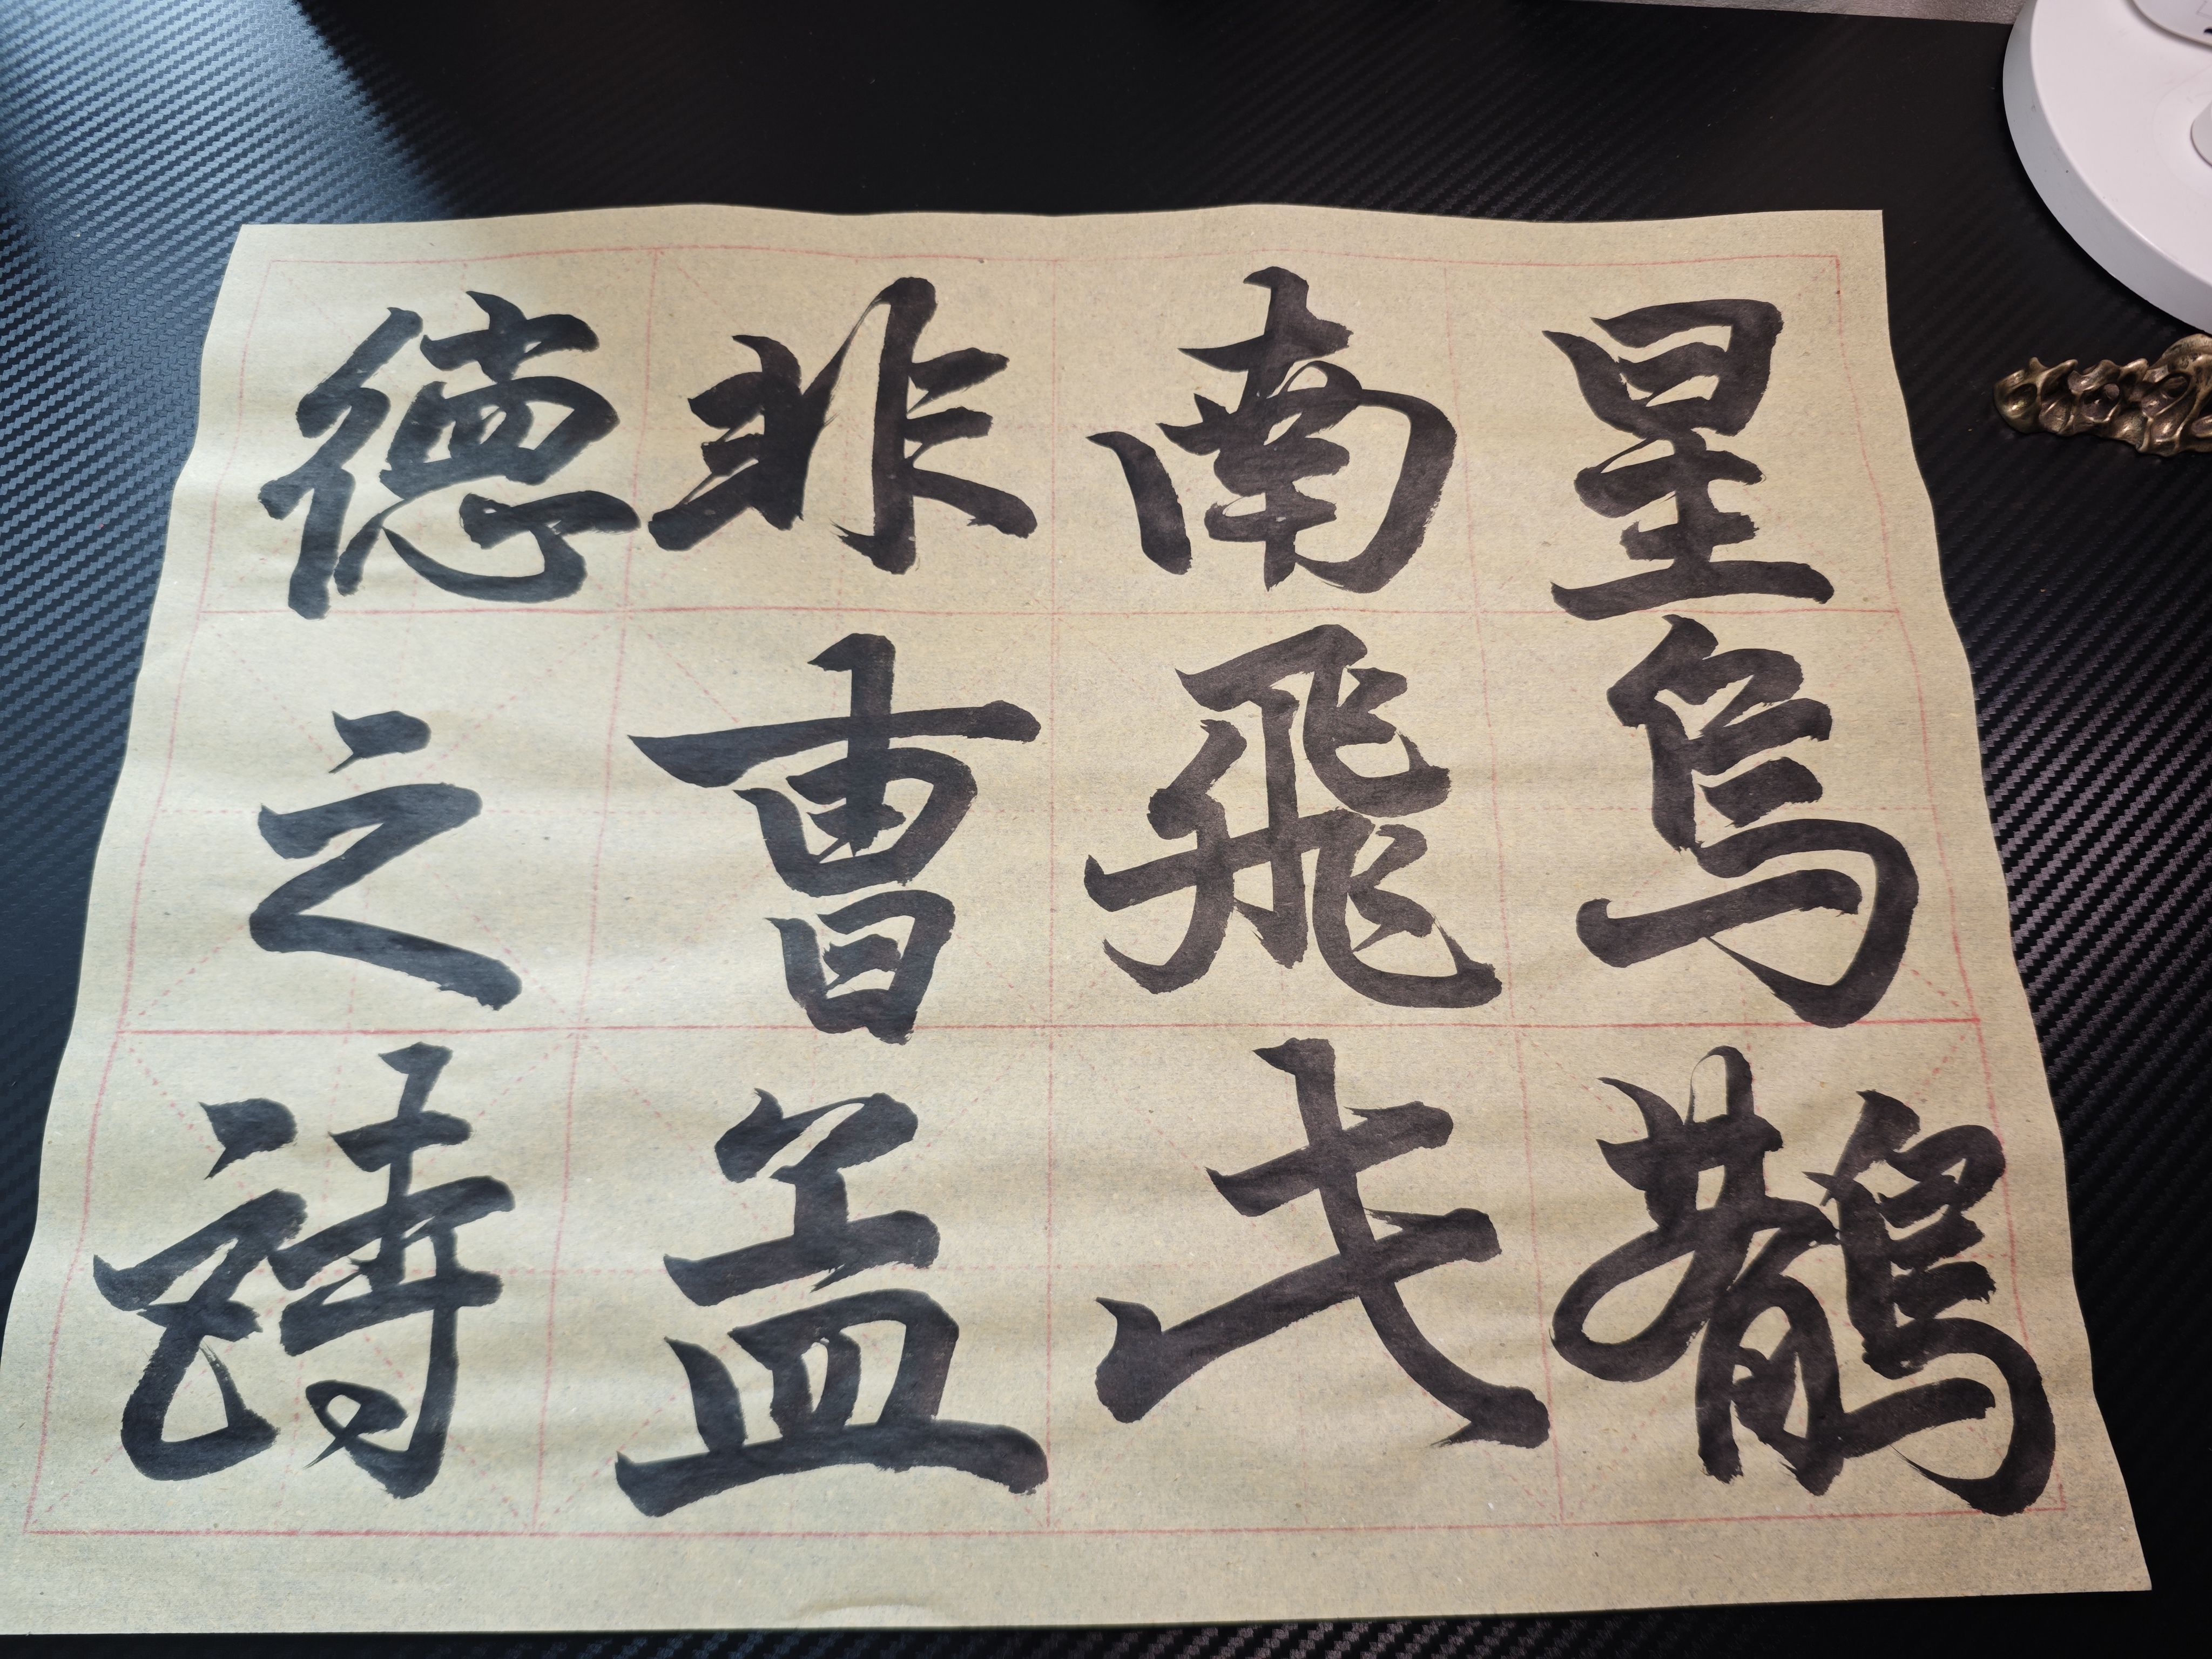 星烏鵲
南飛此
非曹孟
德之詩